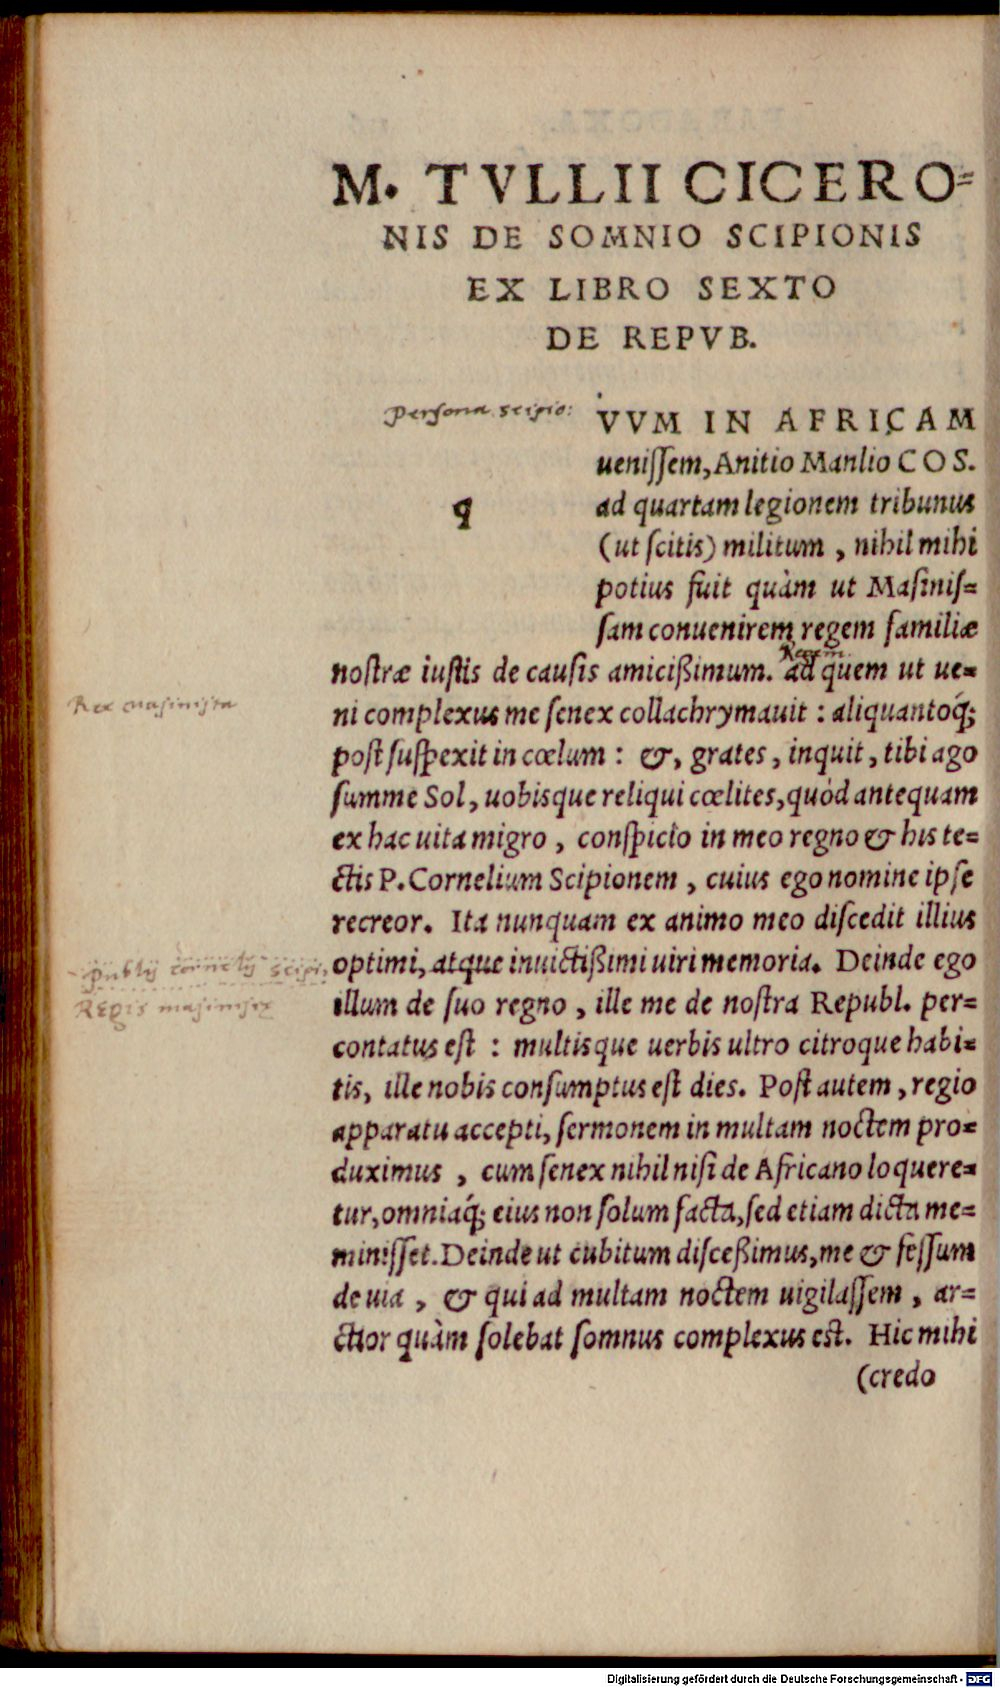 M. TVLLII CICERO=
NIS DE SOMNIO SCIPIONIS
EX LIBRO SEXTO
DE REPVB.
persona scipio:
q VVM IN AFRICAM
uenissem, Anitio Manlio COS.
ad quartam legionem tribunus
(ut scitis) militum, nihil mihi
potius fuit quàm ut Masinis=
sam conuenirem regem familiæ
Regem.
nostræ iustis de causis amicißimum. ad quem ut ue=
Rex masinissa
ni complexus me senex collachrymauit: aliquantoq́;
post suspexit in cœlum: &, grates, inquit, tibi ago
summe Sol, uobisque reliqui cœlites, quòd antequam
ex hac uita migro, conspicio in meo regno & his te=
ctis P. Cornelium Scipionem, cuius ego nomine ipse
recreor. Ita nunquam ex animo meo discedit illius
publij cornelij scipi:
optimi, atque inuictißimi uiri memoria. Deinde ego
Regis masinisse
illum de suo regno, ille me de nostra Republ. per=
contatus est: multisque uerbis ultro citroque habi=
tis, ille nobis consumptus est dies. Post autem, regio
apparatu accepti, sermonem in multam noctem pro=
duximus, cum senex nihil nisi de Africano loquere=
tur, omniaq́; eius non solum facta, sed etiam dicta me=
minisset. Deinde ut cubitum disceßimus, me & fessum
de uia, & qui ad multam noctem uigilassem, ar=
ctior quàm solebat somnus complexus est. Hic mihi
(credo
Digitalisierung gefördert durch die Deutsche Forschungsgemeinschaft - DFG